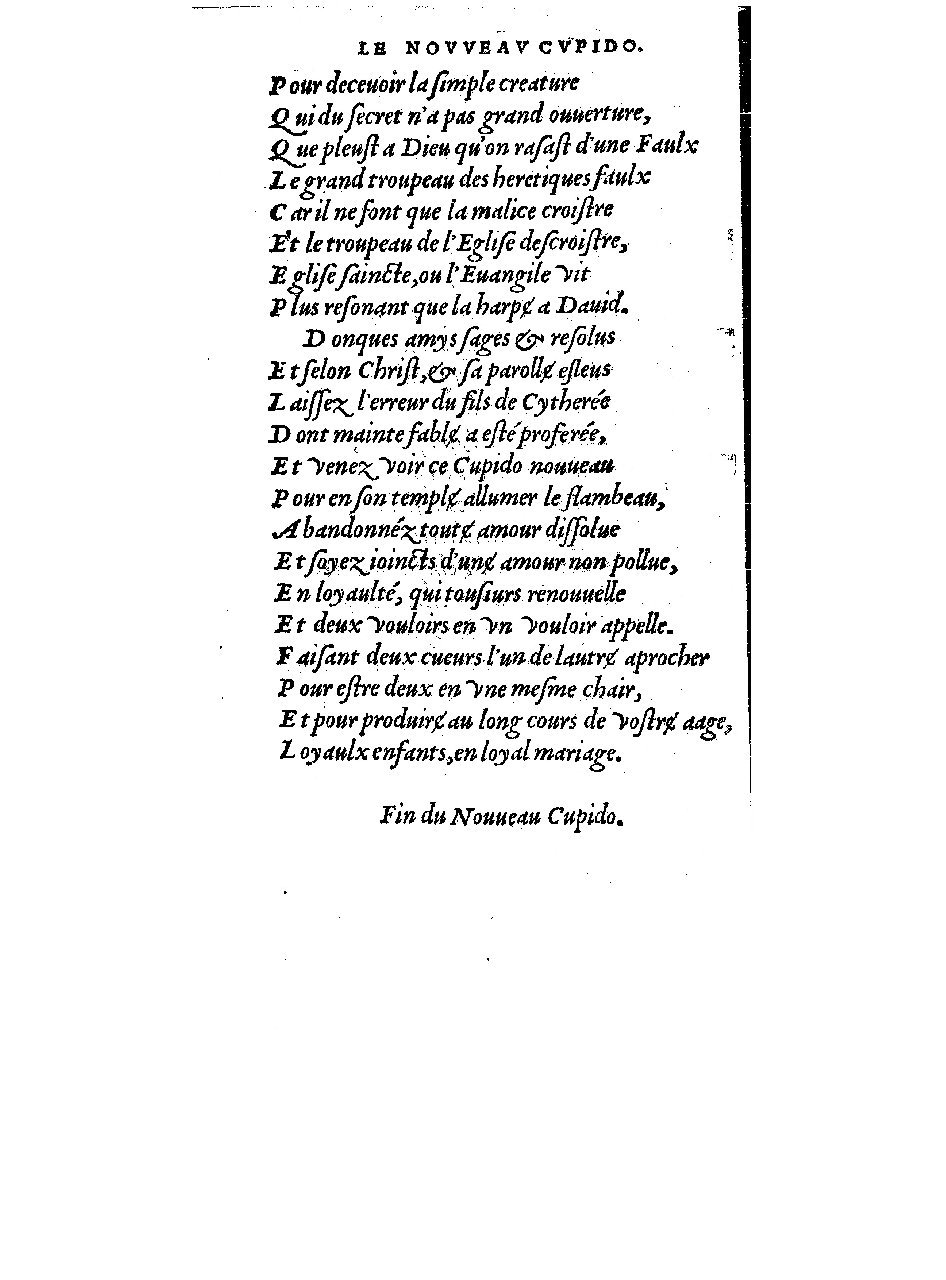 LE NOVVEAV CVPIDO.
Pour deceuoir la ſimple creature
Qui du ſecret n'a pas grand ouuerture,
Que pleuſt a Dieu qu'on raſaſt d'une Faulx
Le grand troupeau des heretiques faulx
Car il ne font que la malice croiſtre
Et le troupeau de l'Egliſe deſcroiſtre,
Egliſe ſaincte, ou l'Euangile vit
Plus reſonant que la harpɇ a Dauid.
Donques amys ſages & reſolus
Et ſelon Chriſt, & ſa parollɇ eſleus
Laiſſez l'erreur du fils de Cytherée
Dont mainte fablɇ a eſté proferée,
Et venez voir ce Cupido nouueau
Pour en ſon templɇ allumer le flambeau,
Abandonnéz toutɇ amour diſſolue
Et ſoyez ioincts d'unɇ amour non pollue,
En loyaulté, qui touſiurs renouuelle
Et deux vouloirs en vn vouloir appelle.
Faiſant deux cueurs l'un de lautrɇ aprocher
Pour eſtre deux en vne meſme chair,
Et pour produirɇ au long cours de voſtrɇ aage,
Loyaulx enfants, en loyal mariage.
Fin du Nouueau Cupido.